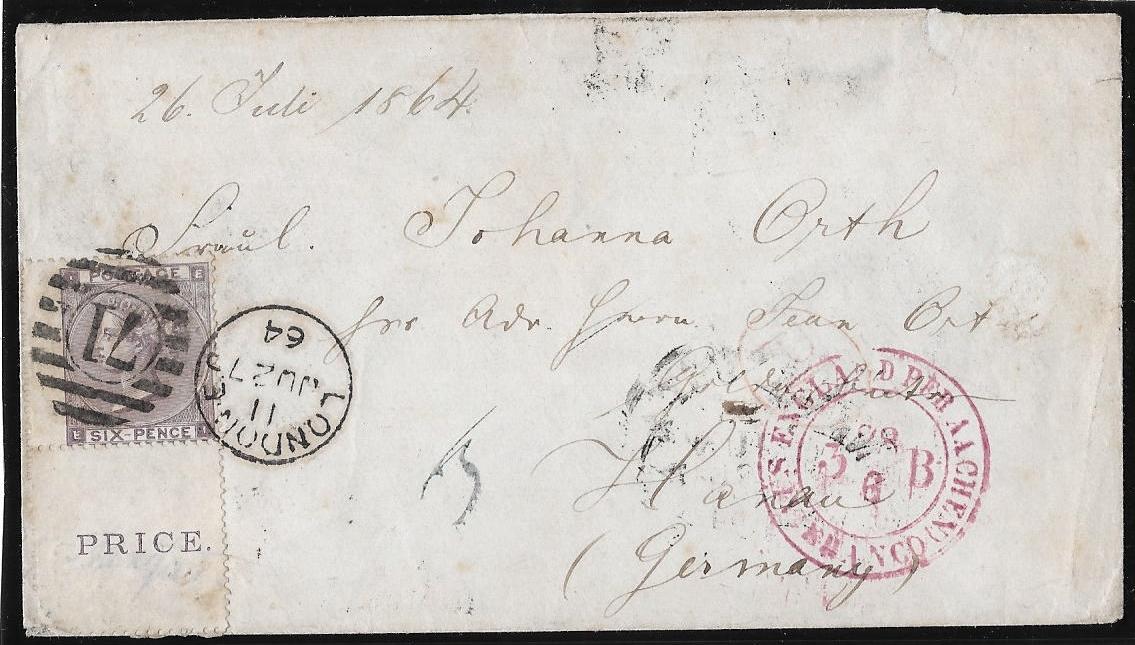 26. Juli 1864.
Fräul. Johanna Orth
per Adr. Herrn Jean Ort
Hanau
(Germany)
POSTAGE
E
SIX-PENCE
L
71
LONDON
11
JU 27
64
PRICE.
ENGLAND PER AACHEN
3 B
6
FRANCO